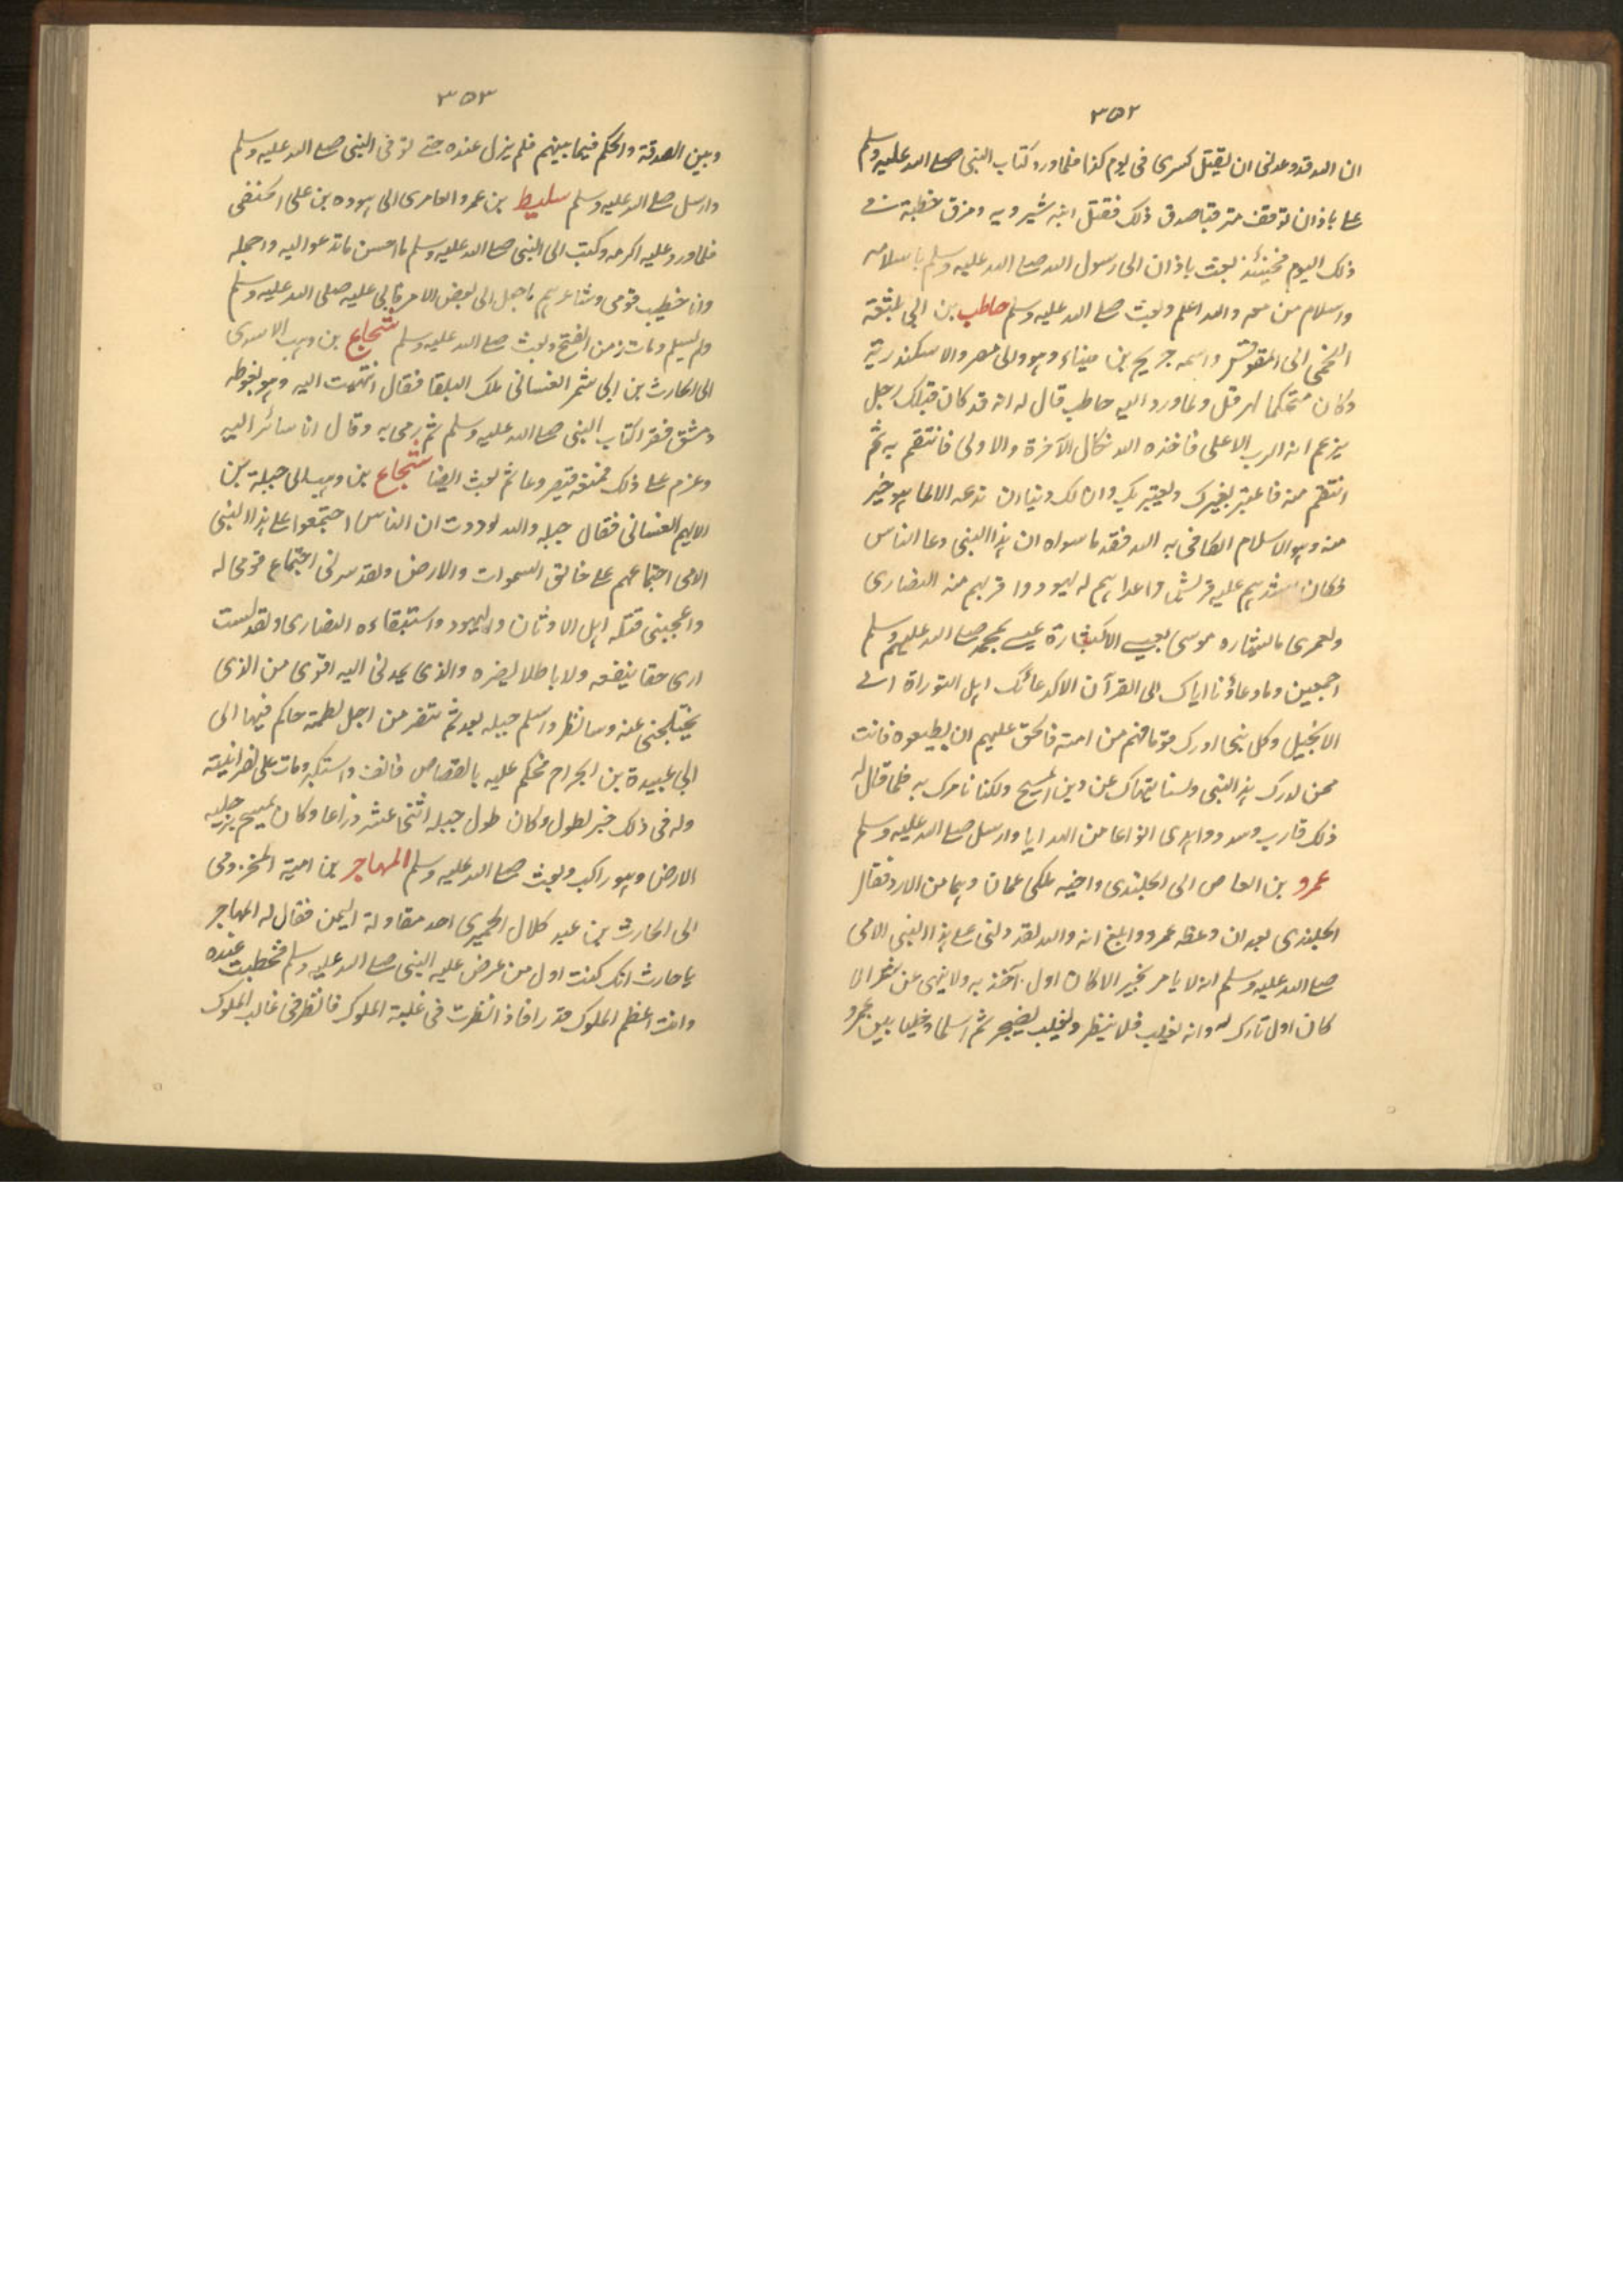 ٣٥٢
ان الله قد وعدنى ان يقتل كسرى فى يوم كذا فلما ورد كتاب النبى صلے الله عليه وسلم
علے باذان توقف مترقبا صدق ذلك فقتل ابنه شيرويه ومزق خطبة فے
ذلك اليوم فحينئذ بعث باذان الى رسول الله صلے الله عليه وسلم باسلامه
واسلام من معه والله اعلم وبعث صلے الله عليه وسلم حاطب بن ابى بلتعة
اللخمى الى المقوقس واسمه جريح بن ميناء وهو والى مصر والاسكندرية
وكان متحكما لهرقل ولما ورد اليه حاطب قال له انه قد كان قبلك رجل
يزعم انه الرب الاعلى فاخذه الله نكال الآخرة والاولى فانتقم به ثم
انتقم منه فاعتبر بغيرك ولا يعتبر بك وان لك دينا لن تدعه الا لما هو خير
منه وهو الاسلام الكافى به الله فقد ما سواه ان هذا النبى دعا الناس
فكان اشدهم عليه قريش واعداهم له يهود واقربهم منه النصارى
ولعمرى ما بشاره موسى بعيسے الا كبشارة عيسے بمحمد صلے الله عليهم وسلم
اجمعين وما دعاؤنا اياك الى القرآن الا كدعائك اهل التوراة الے
الانجيل وكل نبى ادرك قوما فهم من امته فالحق عليهم ان يطيعوه فانت
ممن ادرك هذا النبى ولسنا ننهاك عن دين المسيح ولكنا نامرك به فلما قال له
ذلك قارب وسدد واهدى انواعا من الهدايا وارسل صلے الله عليه وسلم
عمرو بن العاص الى الجلندى واخيه ملكى عمان وهما من الازد فقال
الجلندى بعد ان وعظه عمرو وابلغ انه والله لقد دلنى علے هذا النبى الامى
صلے الله عليه وسلم انه لا يامر بخير الا كان اول آخذ به ولا ينهى عن شر الا
كان اول تارك له وانه يغلب فلا يبطر ويغلب فلا يضجر ثم اسلما وخليا بين عمرو
٣٥٣
وبين الصدقة والحكم فيما بينهم فلم يزل عنده حتے توفى النبى صلے الله عليه وسلم
وارسل صلے الله عليه وسلم سليط بن عمرو العامرى الى هوده بن على الحنفى
فلما ورد عليه اكرمه وكتب الى النبى صلے الله عليه وسلم ما احسن ما تدعو اليه واجمله
وانا خطيب قومى وشاعرهم فاجعل الى بعض الامر فابى عليه صلى الله عليه وسلم
ولم يسلم ومات زمن الفتح وبعث صلے الله عليه وسلم شجاع بن وهب الاسدى
الى الحارث بن ابى شمر الغسانى ملك البلقا فقال انتهيت اليه وهو بغوطه
دمشق فقرا كتاب النبى صلے الله عليه وسلم ثم رمى به وقال انا سائر اليه
وعزم علے ذلك فمنعه قيصر وعا ثم بعث ايضا شجاع بن وهب الى جبلة بن
الايهم الغسانى فقال جبله والله لوددت ان الناس اجتمعوا علے هذا النبى
الامى اجتماعهم علے خالق السموات والارض ولقد سرنى اجتماع قومى له
واعجبنى قتله اهل الاوثان واليهود واستبقاءه النصارى ولقد لست
ارى حقا ينفعه ولا باطلا يضره والذى يمدنى اليه اقوى من الذى
يختلجنى عنه وسانظر واسلم جبله بعد ثم تنصر من اجل لطمة حاكم فيها الى
ابى عبيدة بن الجراح فحكم عليه بالقصاص فانف واستكبر ومات على نصرانيته
وله فى ذلك خبر يطول وكان طول جبله اثنى عشر ذراعا وكان يمسح برجليه
الارض وهو راكب وبعث صلے الله عليه وسلم المهاجر بن امية المخزومى
الى الحارث بن عبد كلال الحميرى احد مقاولة اليمن فقال له المهاجر
يا حارث انك كنت اول من عرض عليه النبى صلے الله عليه وسلم فخطيت عنده
وانت اعظم الملوك قدرا فاذا نظرت فى غلبة الملوك فانظر فى غالب الملوك